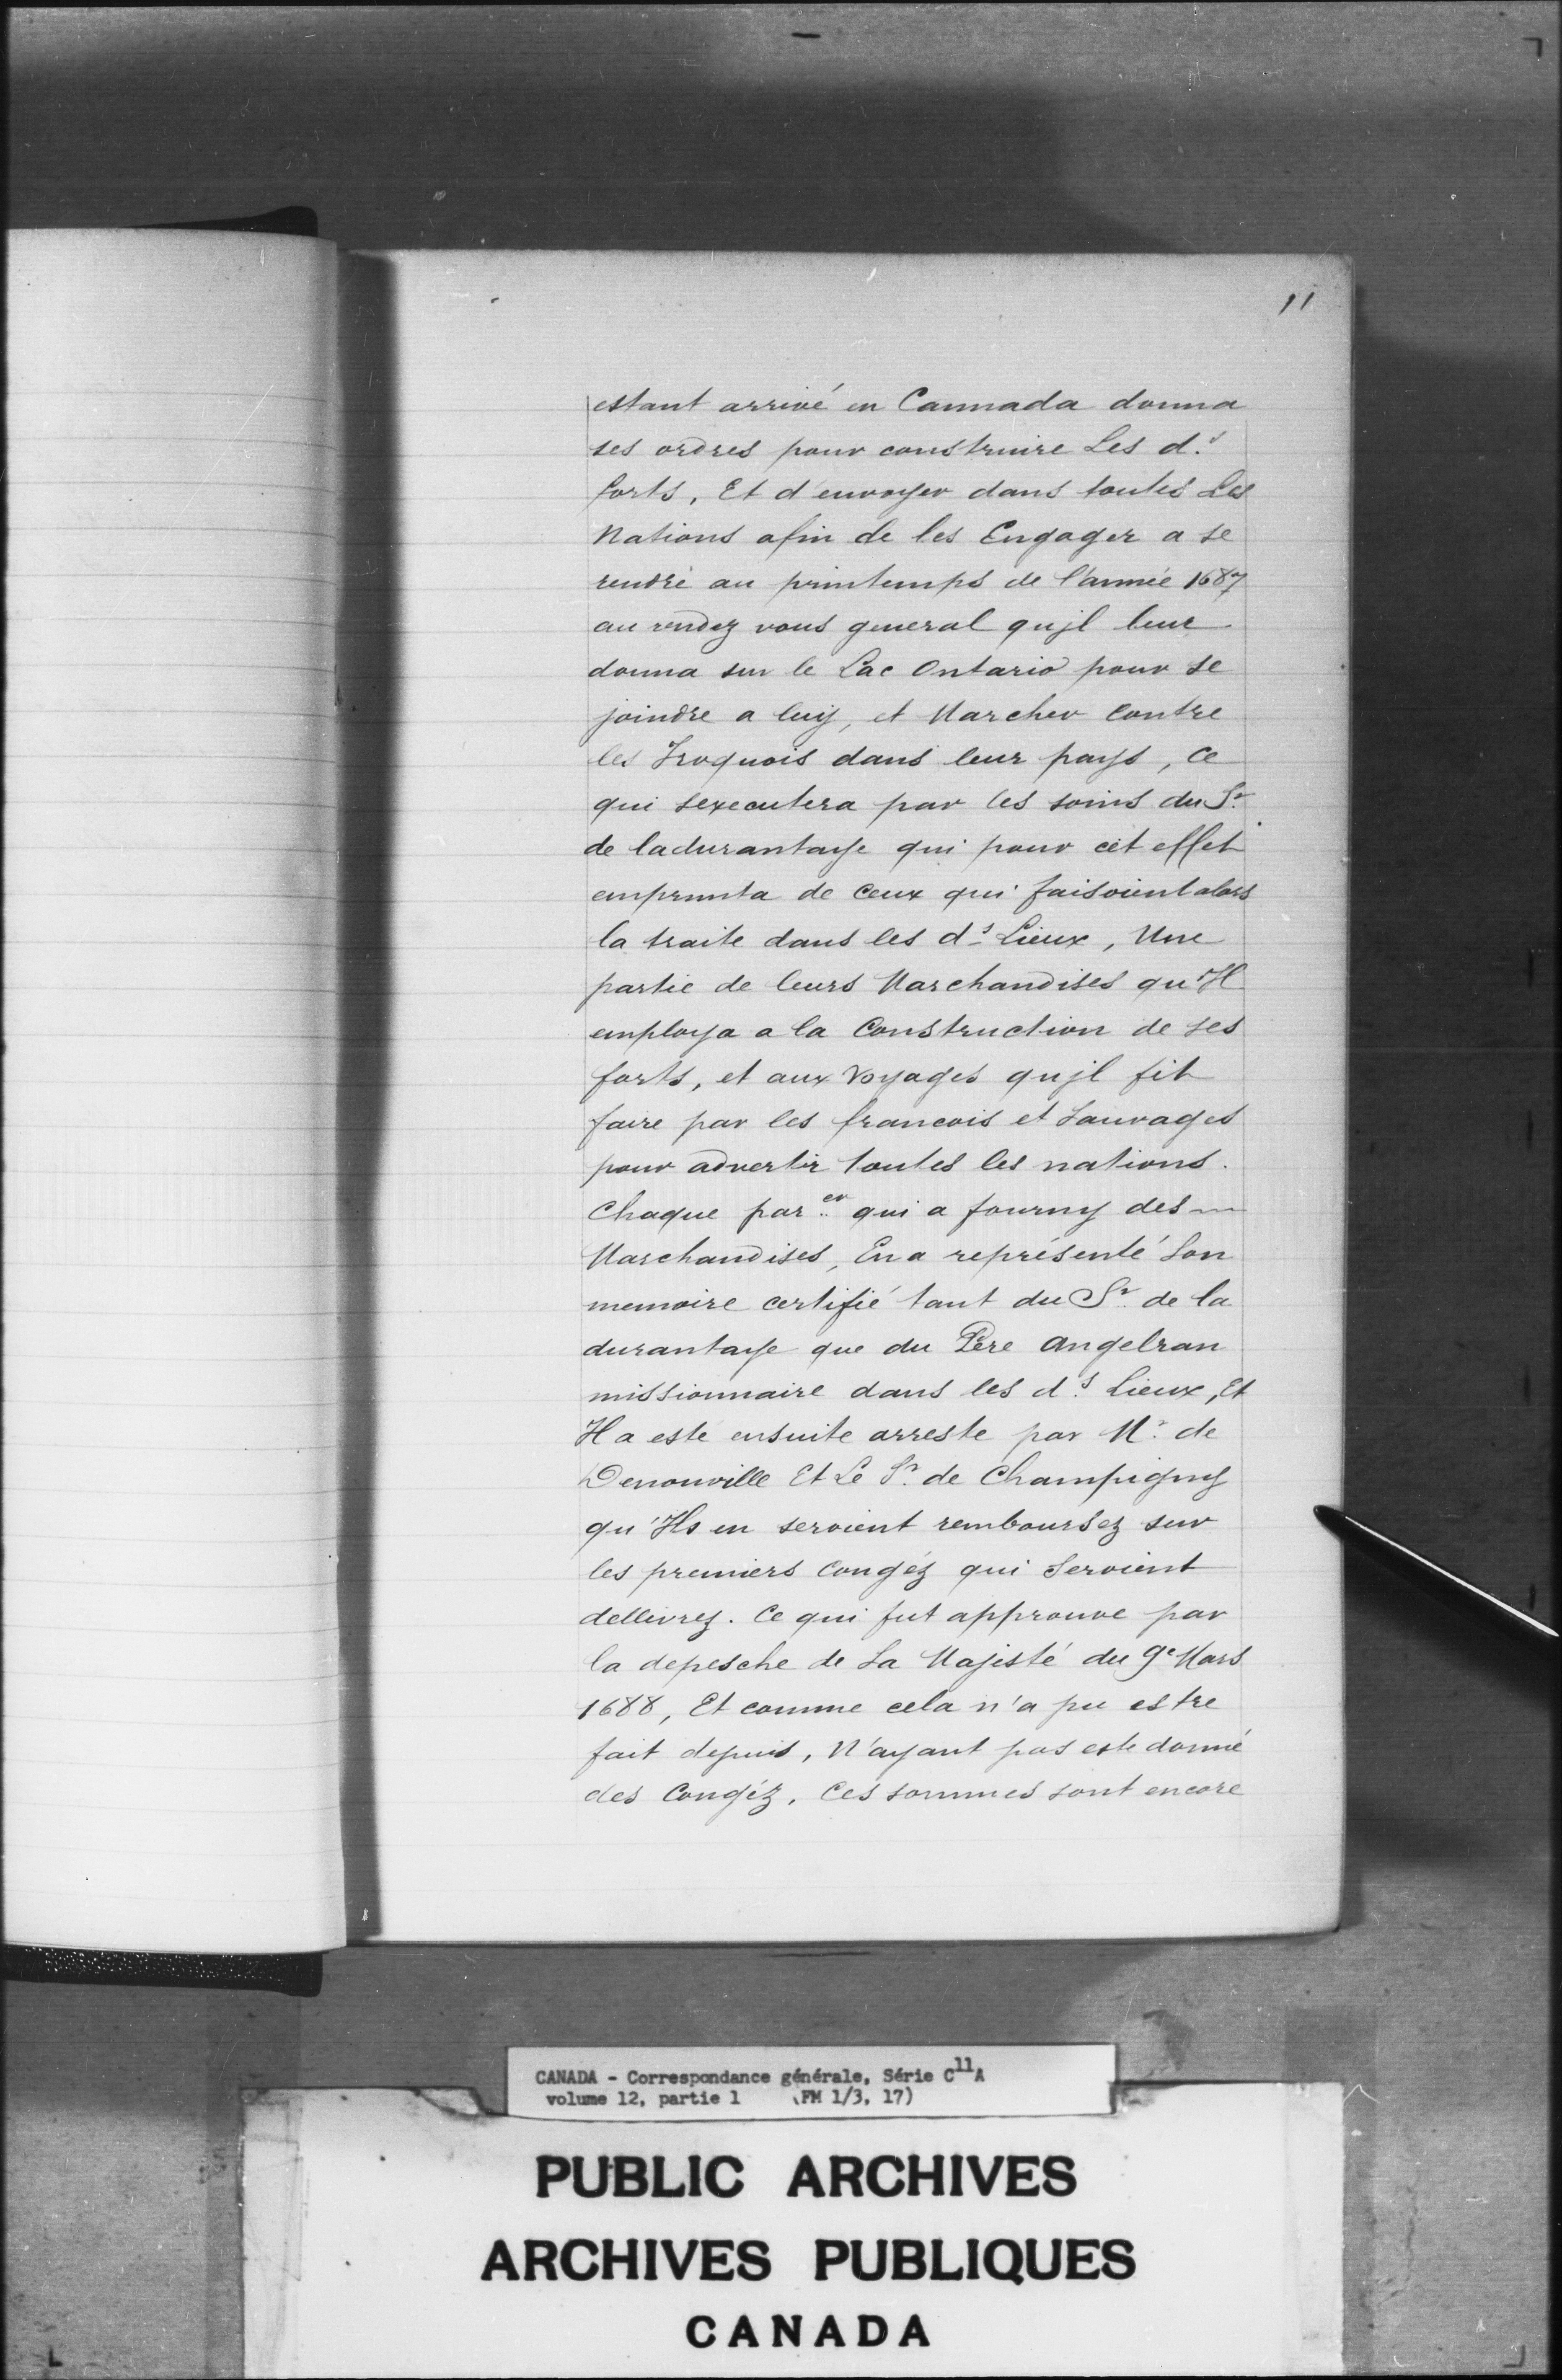 11
estant arrivé en Cannada donna
ses ordres pour construire Les d.s
forts, Et d'envoyer dans toutes Les
Nations afin de les Engager a se
rendre au printemps de l'année 1687
au rendez vous general qu'jl leur
donna sur le Lac Ontario pour se
joindre a luy, et Marcher contre
les Iroquois dans leur pays, ce
qui sexecutera par les soins du Sr.
de ladurantaye qui pour cet effet
emprunta de ceux qui faisoient alors
la traite dans les d.s Lieux, Une
partie de leurs Marchandises qu'Il
employa a la Construction de ses
forts, et aux Voyages qu'jl fit
faire par les francois et Sauvages
pour advertir toutes les nations.
Chaque par.er qui a fourny des
Marchandises, En a représenté Son
memoire certifié tant du Sr. de la
durantaye que du Père Angelran
missionnaire dans les d.s Lieux, Et
Il a esté ensuite arreste par Mr. de
Denonville Et Le Sr. de Champigny
qu'Ils en seroient remboursez sur
les premiers Congéz qui Seroient
dellivrez. Ce qui fut approuve par
la depesche de Sa Majesté du 9e Mars
1688, Et comme cela n'a pu estre
fait depuis, N'ayant pas este donné
des Congéz. Ces sommes sont encore
CANADA - Correspondance générale, Série C11A
volume 12, partie 1 (FM 1/3, 17)
PUBLIC ARCHIVES
ARCHIVES PUBLIQUES
CANADA